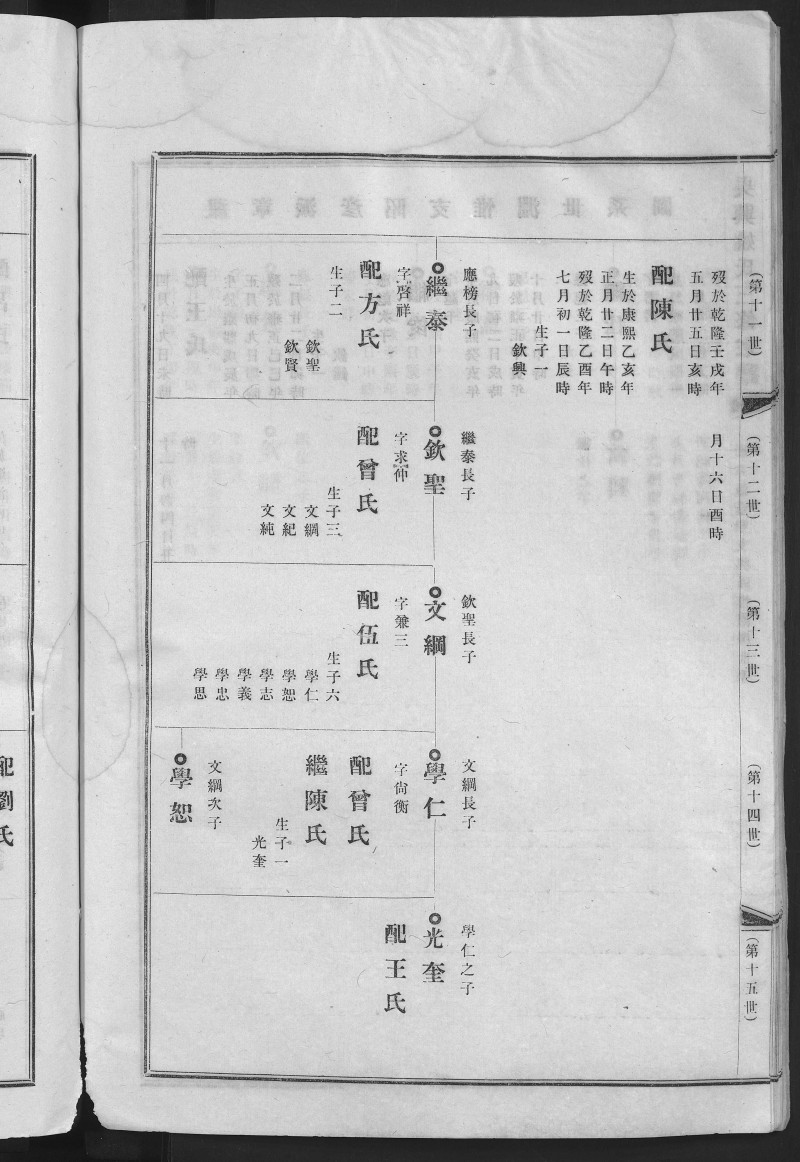 (第十一世)
歿於乾隆壬戌年
五月廿五日亥時
配陳氏
生於康熙乙亥年
正月廿二日午時
歿於乾隆乙酉年
七月初一日辰時
生子一
欽興
應榜長子
繼泰
字啓祥
配方氏
生子二
欽聖
欽賢
(第十二世)
月十六日酉時
繼泰長子
欽聖
字求仲
配曾氏
生子三
文綱
文紀
文純
(第十三世)
欽聖長子
文綱
字兼三
配伍氏
生子六
學仁
學恕
學志
學義
學忠
學思
(第十四世)
文綱長子
學仁
字尙衡
配曾氏
繼陳氏
生子一
光奎
文綱次子
學恕
(第十五世)
學仁之子
光奎
配王氏
配劉氏